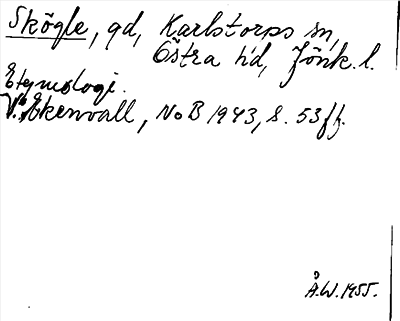 Skögle, gd, Karlstorps sn,
Östra hd, Jönk. l.
Etymologi.
V. Ekenvall, NoB 1943, s. 53 ff.
Å.W. 1955.